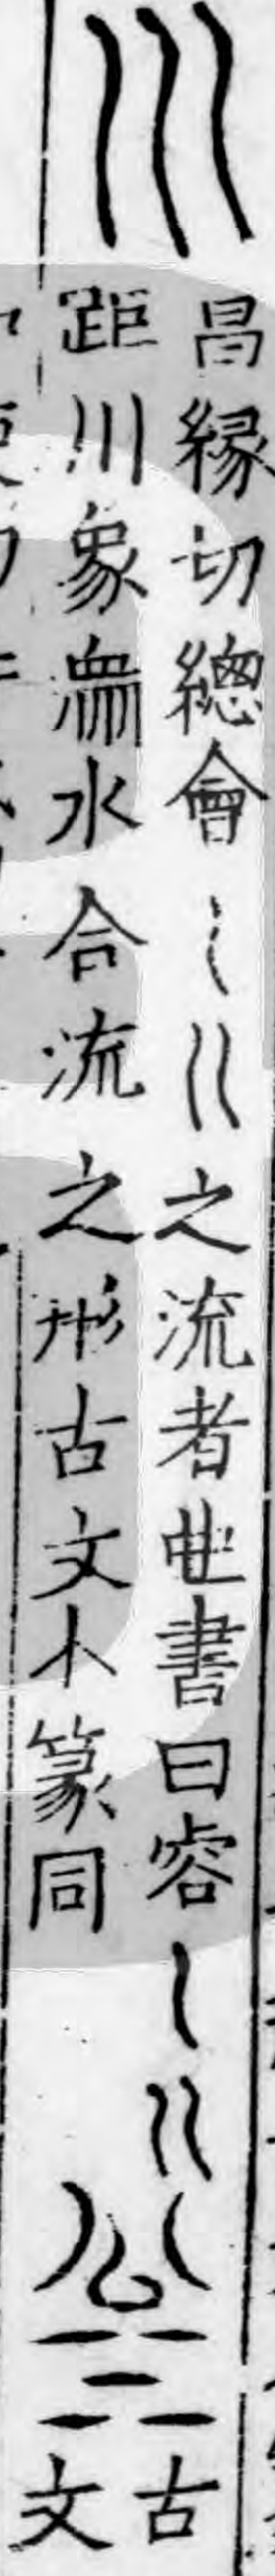 巛
昌縁切總會〱巜之流者也書曰容〱巜
距川象衆水合流之形古文小篆同
古
文